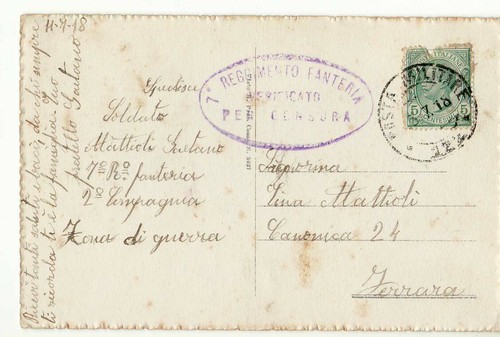 11-7-18
Ricevi tanti saluti e baci da chi sempre
ti ricorda te e la famiglia tuo
fratello Gaetano
Spedisce
Soldato
Mattioli Gaetano
7° Rgo fanteria
2a Compagnia
Zona di guerra
7° REGGIMENTO FANTERIA
VERIFICATO
PER CENSURA
POSTA MILITARE
7.18
5
5
Signorina
Gina Mattioli
Canonica 24
Ferrara